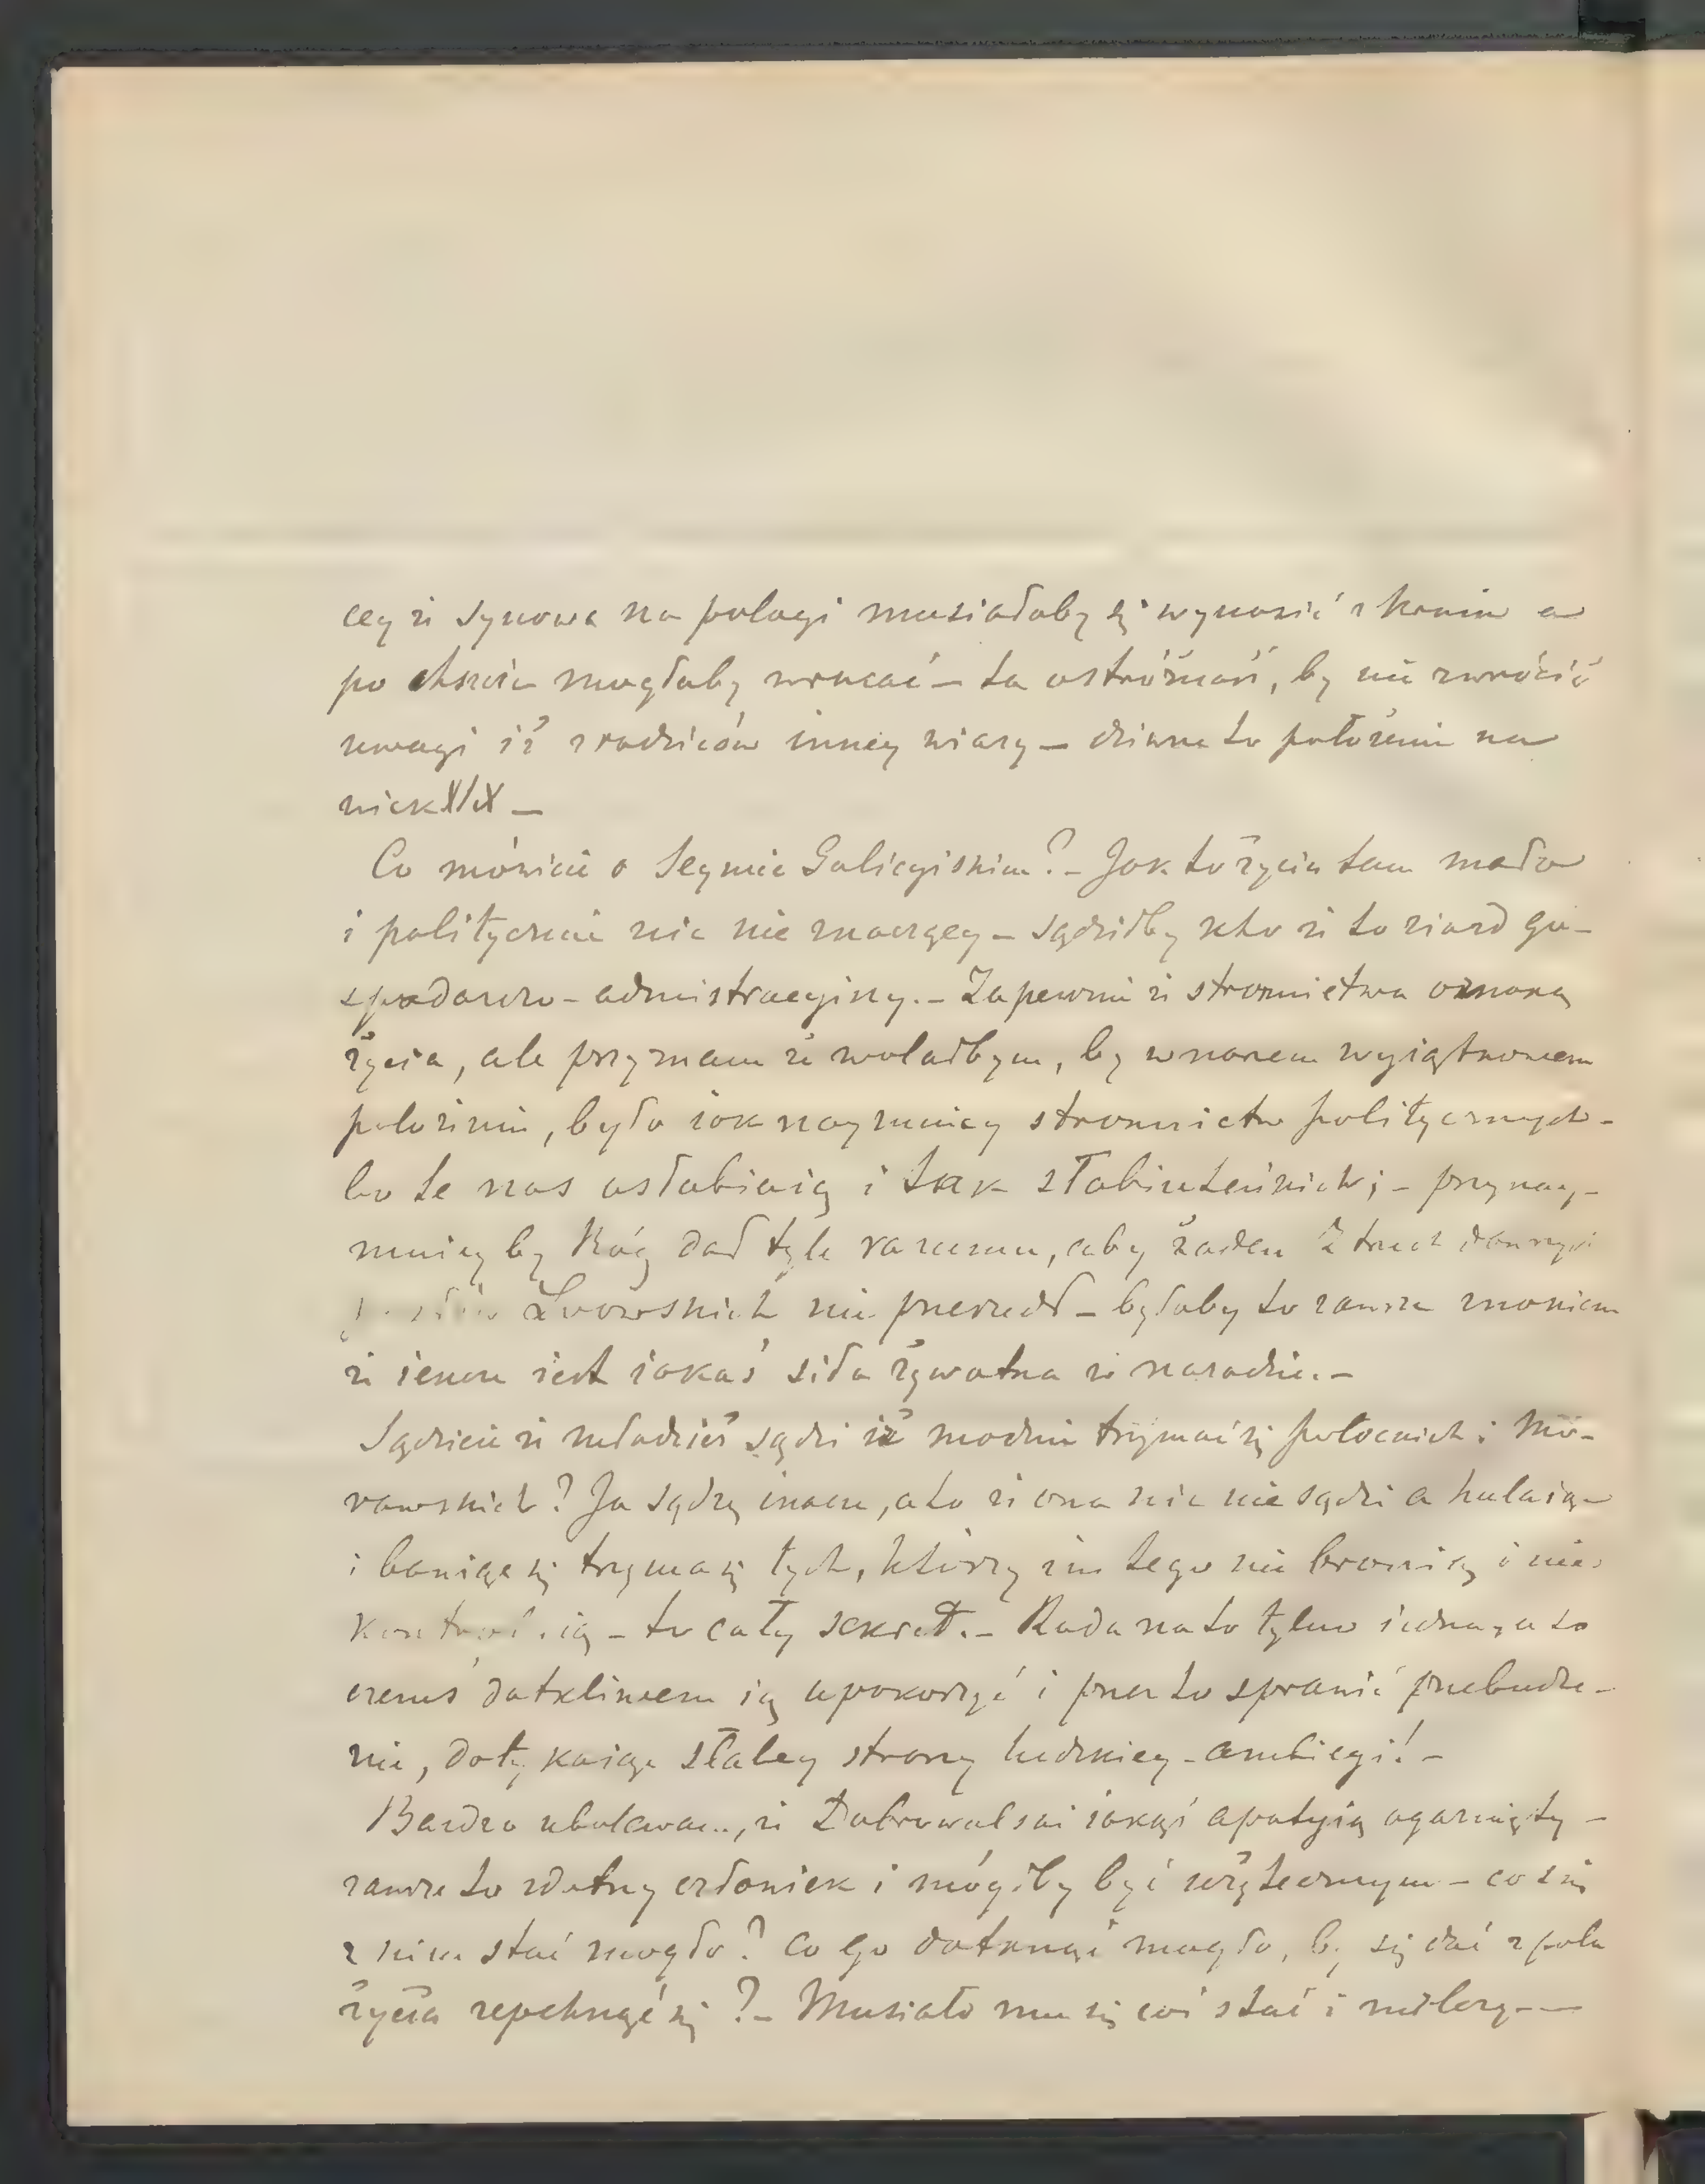 cey iż synowa na połogi musiałaby się wynosić z kraiu a
po chrzcie mogłaby wracać – ta ostróżność, by nie zwrócić
uwagi iż z rodziców inney wiary – dziwne to położenie na
wiek XIX –
Co mówicie o Seymie Galicyiskim? – Jak to życia tam mało
i politycznie nic nie znaczącey – sądziłby kto iż to ziazd go-
spodarczo – admistracyiny. – Zapewnie iż stronnictwa oznaką
życia, ale przyznam iż wolałbym, by w naszem wyiątkowem
położeniu, było iak naymniey stronnictw politycznych –
bo te nas osłabiaią i tak słabiuteńkich; – przynay-
mniey by Bóg dał tyle rozumu, aby żaden z trzech
Lwowskich nie przeszedł – byłoby to zawsze znakiem
iż ieszcze iest iakaś siła żywotna w narodzie. –
Sądzicie iż młodzież sądzi iż modnie trzymać się Potockich i Mo-
rawskich? Ja sądzę inaczej, a to iż ona nic nie sądzi a hulaiąc
i bawiąc się trzyma się tych, którzy im tego nie bronią i nie
– to cały sekret. – Rada na to tylko iedna, a to
czemś dotkliwem ią upokorzyć i przez to sprawić przebudze-
nie, dotykaiąc słabey strony ludzkiey – ambicyi! –
Bardzo ubolewam, iż Dobrowolski iakąś apatyią ogarnięty –
zawsze to zdatny człowiek i mógłby być użytecznym – co się
z nim stać mogło? co go dotknąć mogło, by się dać z pola
życia zepchnąć się? – Musiało mu się coś stać i